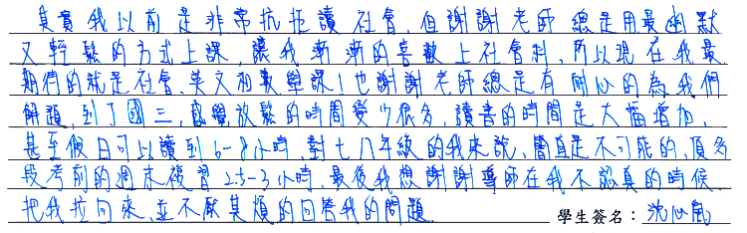 其實我以前是非常抗拒讀社會，但謝謝老師總是用最幽默
又輕鬆的方式上課，讓我漸漸的喜歡上社會科，所以現在我最
期待的就是社會、英文和數學課！也謝謝老師總是有耐心的為我們
解題，到了國三，感覺放鬆的時間變少很多，讀書的時間是大幅增加，
甚至假日可以讀到6-8小時，對七八年級的我來說，簡直是不可能的，頂多
段考前的週末複習2.5-3小時，最後我想謝謝導師在我不認真的時候
把我拉回來，並不厭其煩的回答我的問題。
學生簽名：沈心